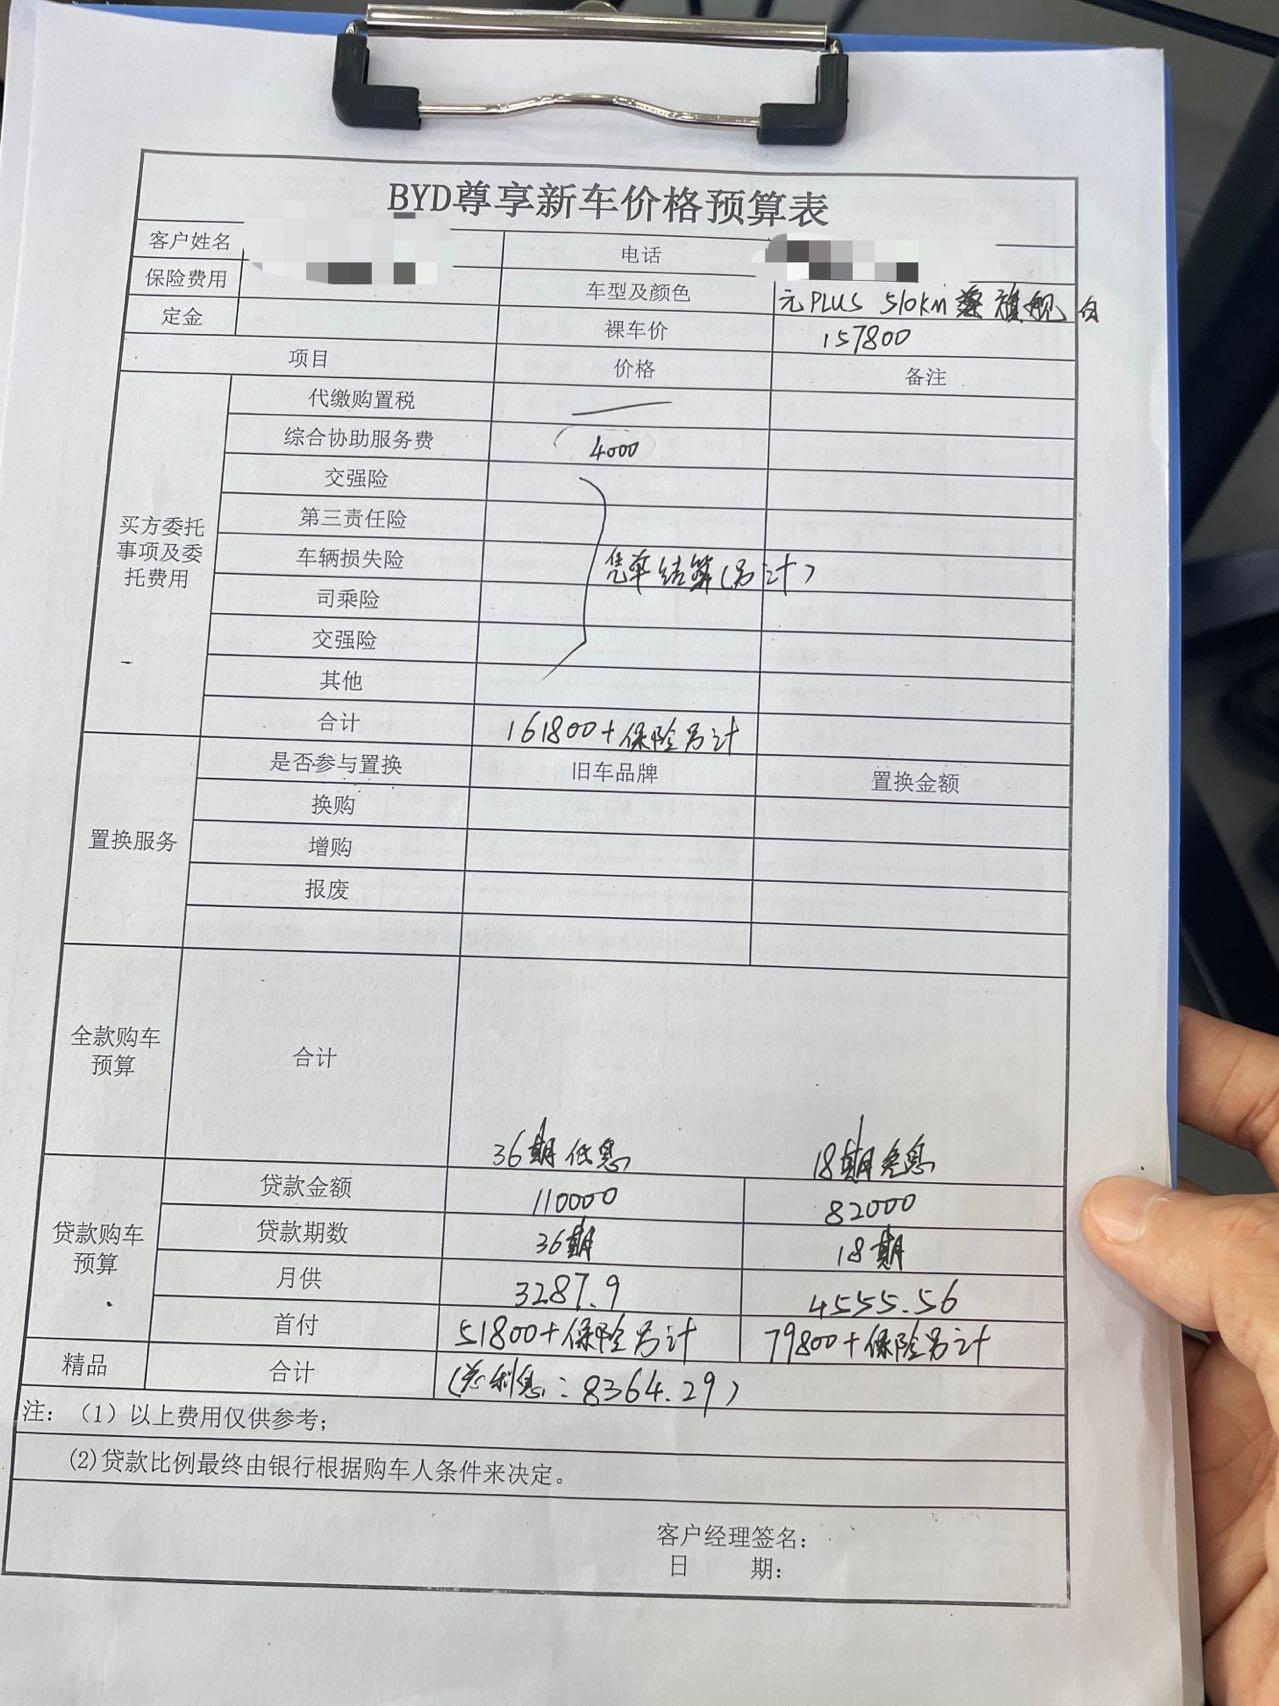 BYD尊享新车价格预算表
客户姓名 电话
保险费用 车型及颜色 元PLUS 510km 旗舰 白
定金 裸车价 157800
项目 价格 备注
买方委托事项及委托费用
代缴购置税
综合协助服务费 4000
交强险
第三责任险
车辆损失险 凭单结算(另计)
司乘险
交强险
其他
合计 161800+保险另计
置换服务
是否参与置换 旧车品牌 置换金额
换购
增购
报废
全款购车预算 合计
36期低息 18期免息
贷款购车预算
贷款金额 110000 82000
贷款期数 36期 18期
月供 3287.9 4555.56
首付 51800+保险另计 79800+保险另计
精品 合计 (总利息:8364.29)
注:(1)以上费用仅供参考;
(2)贷款比例最终由银行根据购车人条件来决定。
客户经理签名:
日 期: